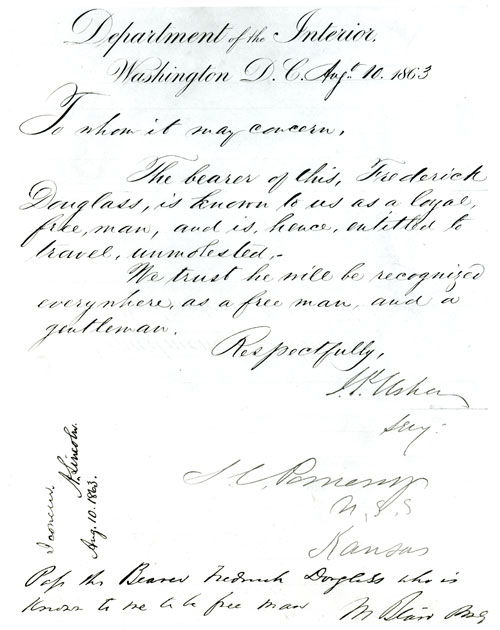 Department of the Interior,
Washington D. C. Augt. 10. 1863
To whom it may concern,
The bearer of this, Frederick
Douglass, is known to us as a loyal,
free, man, and is, hence, entitled to
travel, unmolested,-
We trust he will be recognized
everywhere, as a free man, and a
gentleman.
Respectfully,
J. P. Usher
Secy.
S. C. Pomeroy
U. S. S
Kansas
I concur.
A. Lincoln.
Aug. 10. 1863.
Pass the Bearer Fredrick Douglass who is
known to me to be free man
M Blair